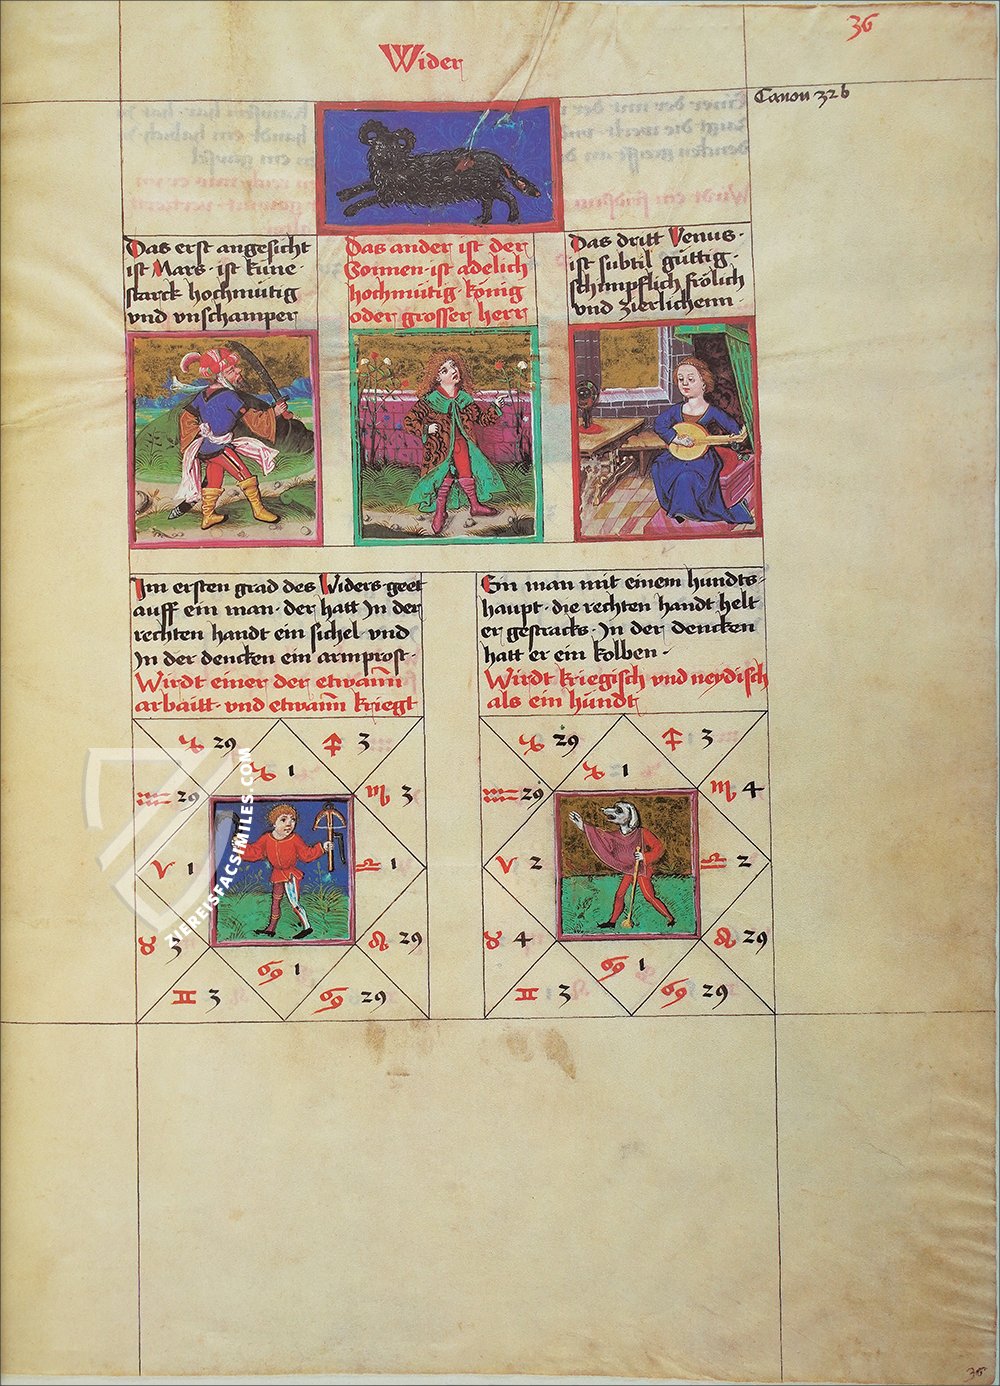 36
Wider
Canon 32 b
Das erst angesicht
ist Mars · ist kune ·
starck hochmütig
vnd vnschamper
Das ander ist der
Sonnen · ist adelich
hochmütig · König
oder grosser herr
Das dritt Venus ·
ist subtil güttig ·
schimpflich frölich
vnd zierlichenn ·
Im ersten grad des Widers · geet
auff ein man · der hatt In der
rechten handt ein sichel · vnd
In der dencken ein armprost ·
Wirdt einer der etwann
arbaitt · vnd etwann kriegt
Ein man mit einem hundts-
haupt · die rechten handt helt
er gestracks · In der dencken
hatt er ein kolben ·
Wirdt kriegisch vnd neydisch
als ein hundt
♑ 29 ♐ 3
♑ 1
♒ 29 ♏ 3
♈ 1 ♎ 1
♉ 3 ♌ 29
♋ 1
♊ 3 ♋ 29
♑ 29 ♐ 3
♑ 1
♒ 29 ♏ 4
♈ 2 ♎ 2
♉ 4 ♌ 29
♋ 1
♊ 3 ♋ 29
ZIEREISFACSIMILES.COM
36